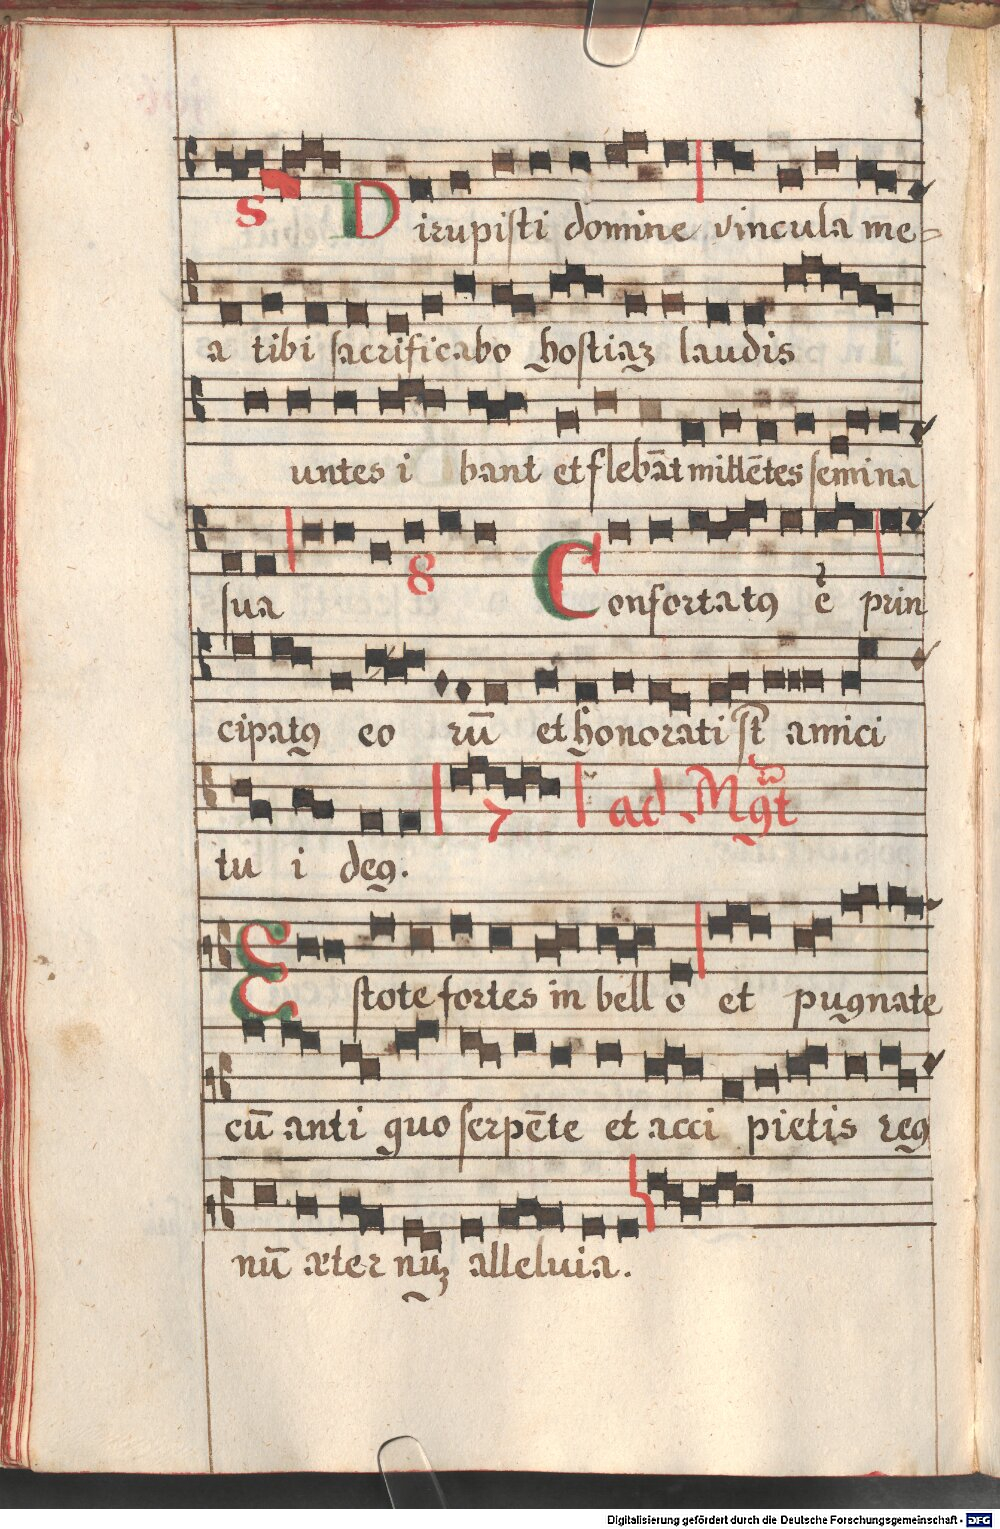 s Dirupisti domine vincula me-
a tibi sacrificabo hostiaȝ laudis
untes i bant et flebāt mittētes semina
sua 8 Confortatꝯ ē prin
cipatꝯ eo rū et honorati st̄ amici
7 ad Mgt
tu i deꝯ.
Estote fortes in bell o et pugnate
cū anti quo serpēte et acci pietis reg
nū æter nuȝ alleluia.
Digitalisierung gefördert durch die Deutsche Forschungsgemeinschaft - DFG